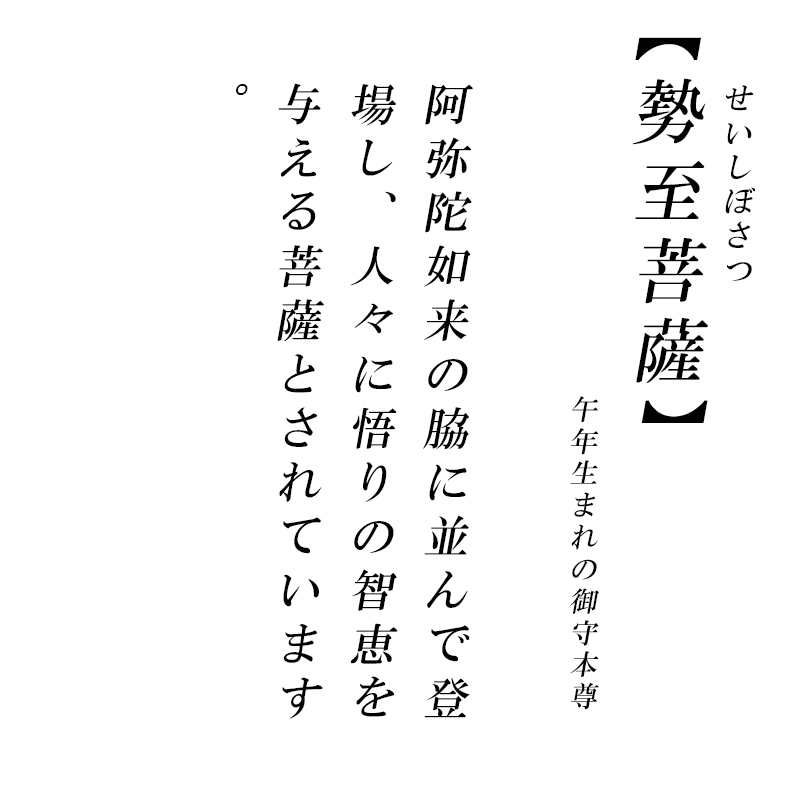 せいしぼさつ
【勢至菩薩】
午年生まれの御守本尊
阿弥陀如来の脇に並んで登
場し、人々に悟りの智恵を
与える菩薩とされています
。